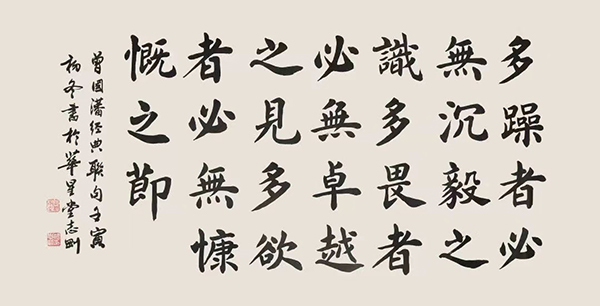 多躁者必
無沉毅之
識多畏者
必無卓越
之見多欲
者必無慷
慨之節
曾國藩經典聯句壬寅
初冬書於華星堂志剛